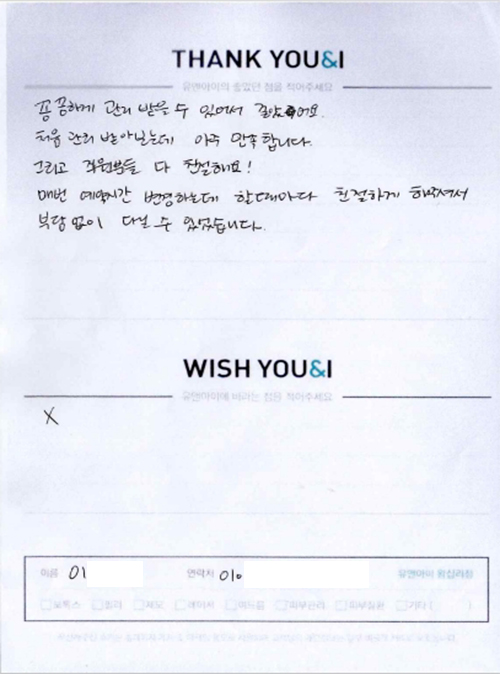 THANK YOU&I
유앤아이의 좋았던 점을 적어주세요
꼼꼼하게 관리 받을 수 있어서 좋았어요.
처음 관리 받아봤는데 아주 만족합니다.
그리고 직원분들 다 친절해요!
매번 예약시간 변경하는데 할때마다 친절하게 해주셔서
부담 없이 다닐 수 있었습니다.
WISH YOU&I
유앤아이에 바라는 점을 적어주세요
X
이름 이 연락처 010 유앤아이 왕십리점
보톡스 필러 제모 레이저 여드름 피부관리 피부질환 기타 ( )